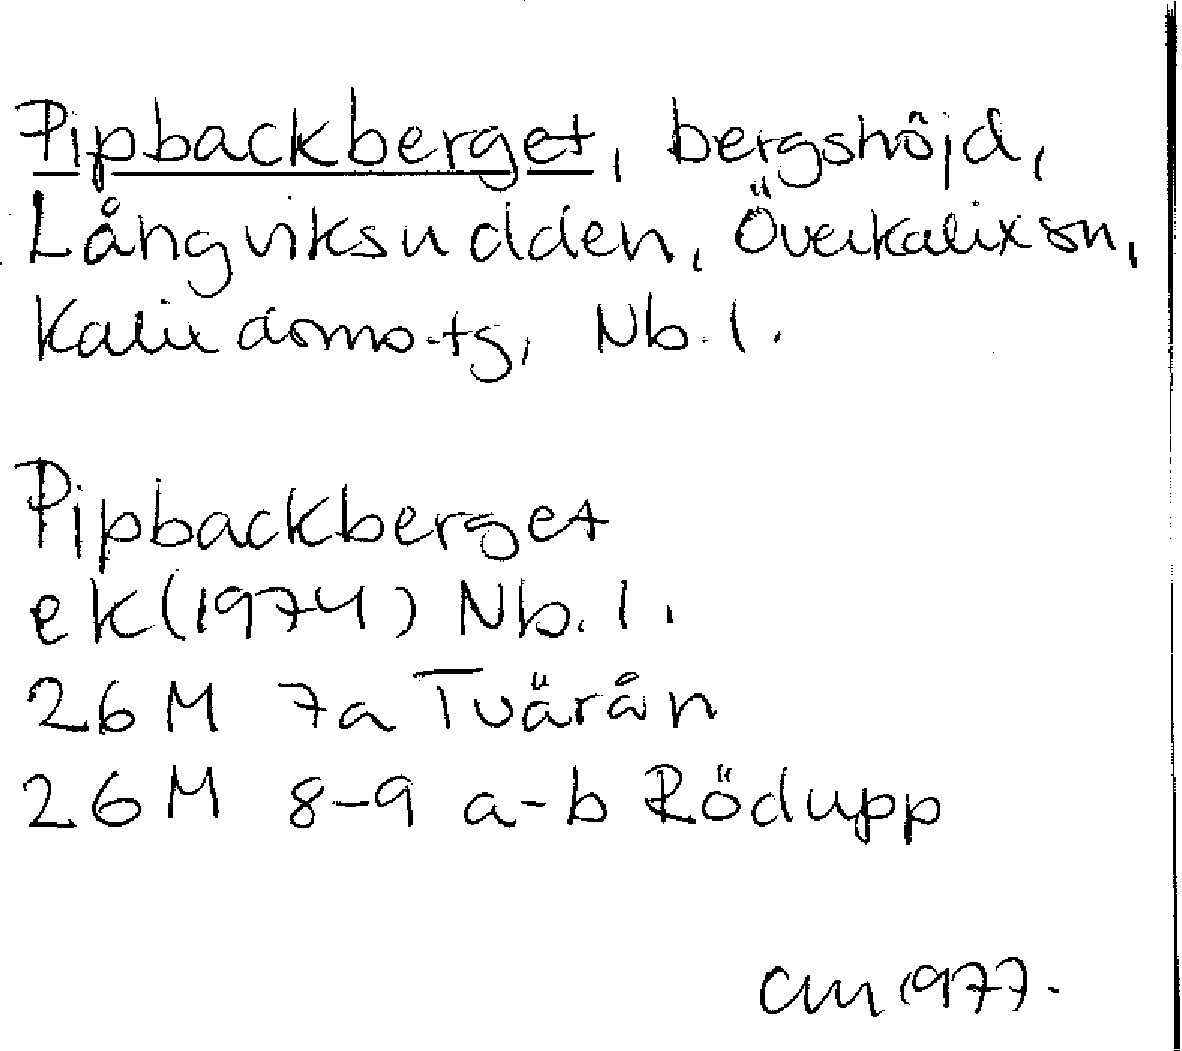 Pipbackberget, bergshöjd,
Långviksudden, Överkalix sn,
Kalix doms.tg, Nb. l.
Pipbackberget
ek (1974) Nb. l.
26 M 7a Tvärån
26 M 8-9 a-b Rödupp
CM 1977.